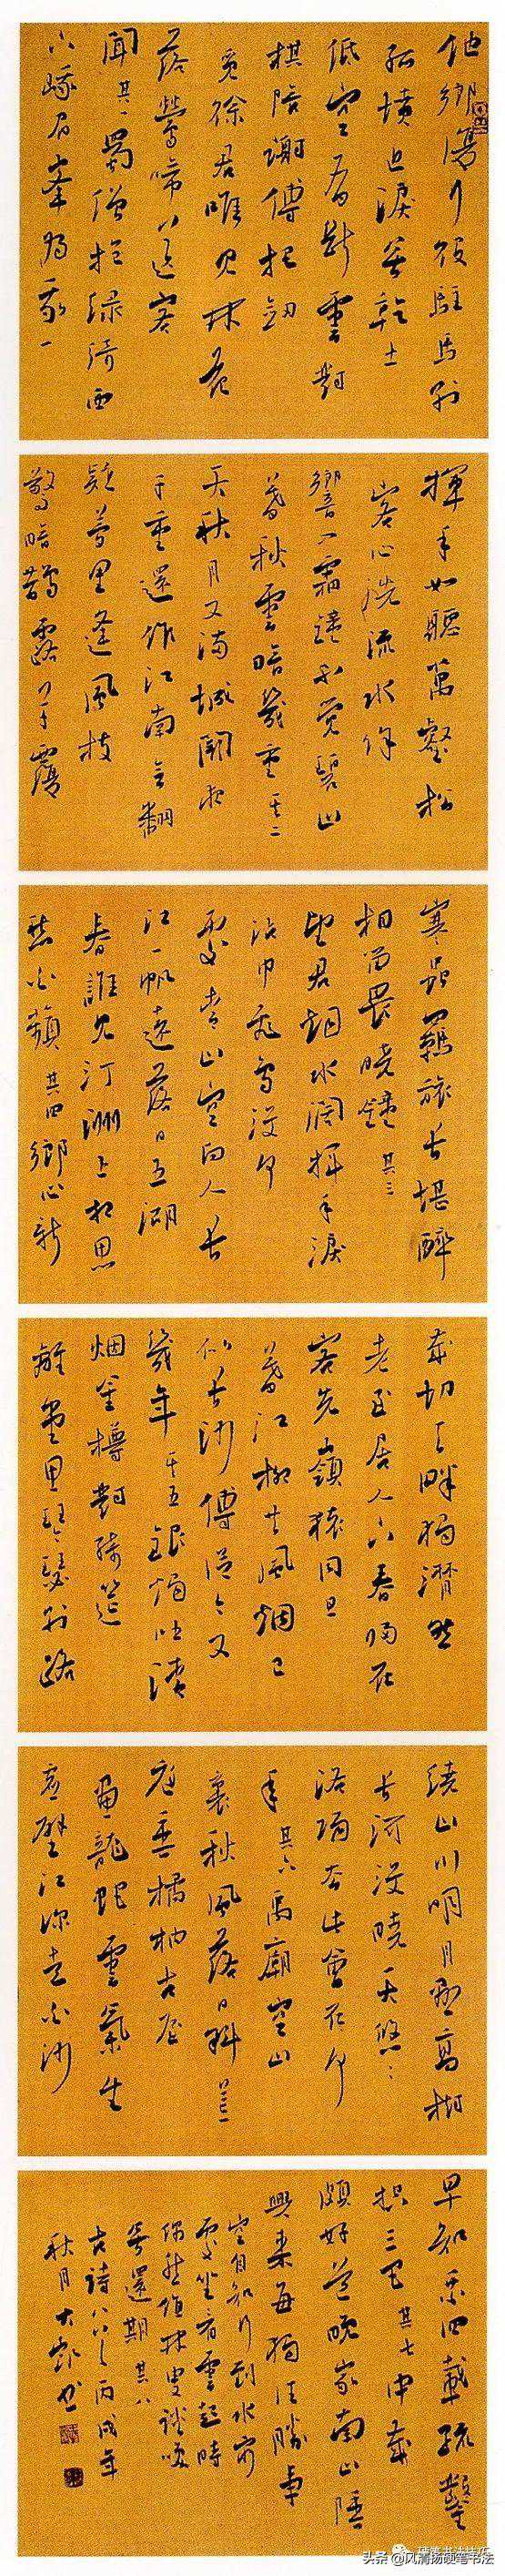 他鄉復行役駐馬別
孤墳近淚無乾土
低空有斷雲對
棋陪謝傅把劍
覓徐君唯見林花
落鶯啼送客
聞 其一 蜀僧抱綠綺西
下峨眉峯為我一
揮手如聽萬壑松
客心洗流水餘
響入霜鐘不覺碧山
暮秋雲暗幾重 其二
天秋月又滿城闕夜
千重還作江南會翻
疑夢里逢風枝
驚暗鵲露草覆
寒蟲羈旅長堪醉
相留畏曉鐘 其三
望君烟水闊揮手淚
沾巾飛鳥沒何
處青山空向人長
江一帆遠落日五湖
春誰見汀洲上相思
愁白蘋 其四 鄉心新
歲切天畔獨潸然
老至居人下春歸在
客先嶺猿同旦
暮江柳共風烟已
似長沙傅從今又
幾年 其五 銀燭吐清
烟金樽對綺筵
離堂思琴瑟別路
繞山川明月隱高樹
長河沒曉天悠悠
洛陽去此會在何
年 其六 禹廟空山
裏秋風落日斜荒
庭垂橘柚古屋
畫龍蛇雲氣生
虛壁江深走白沙
早知乘四載疏鑿
控三巴 其七 中歲
頗好道晚家南山陲
興來每獨往勝事
空自知行到水窮
處坐看雲起時
偶然值林叟談笑
無還期 其八
古詩八丙戌年
秋月大書
头条 @风清扬硬笔书法